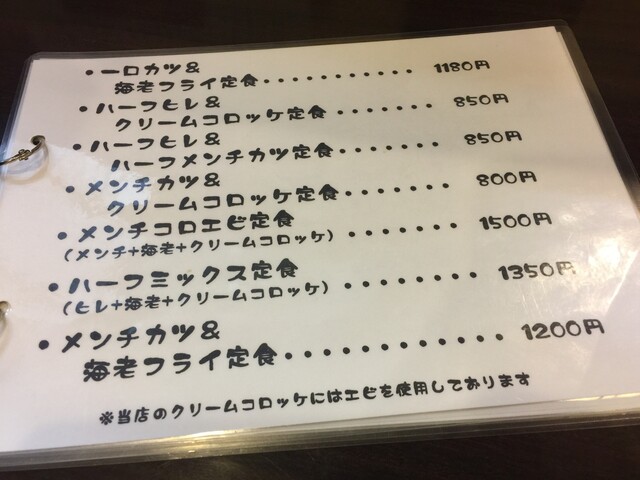 ・一口カツ&
海老フライ定食・・・・・・・・・・・・ 1180円
・ハーフヒレ&
クリームコロッケ定食・・・・・・・ 850円
・ハーフヒレ&
ハーフメンチカツ定食・・・・・・・ 850円
・メンチカツ&
クリームコロッケ定食・・・・・・・ 800円
・メンチコロエビ定食
(メンチ+海老+クリームコロッケ) ・・・・・・・ 1500円
・ハーフミックス定食
(ヒレ+海老+クリームコロッケ) ・・・・・・・・ 1350円
・メンチカツ&
海老フライ定食・・・・・・・・・・・・ 1200円
※当店のクリームコロッケにはエビを使用しております